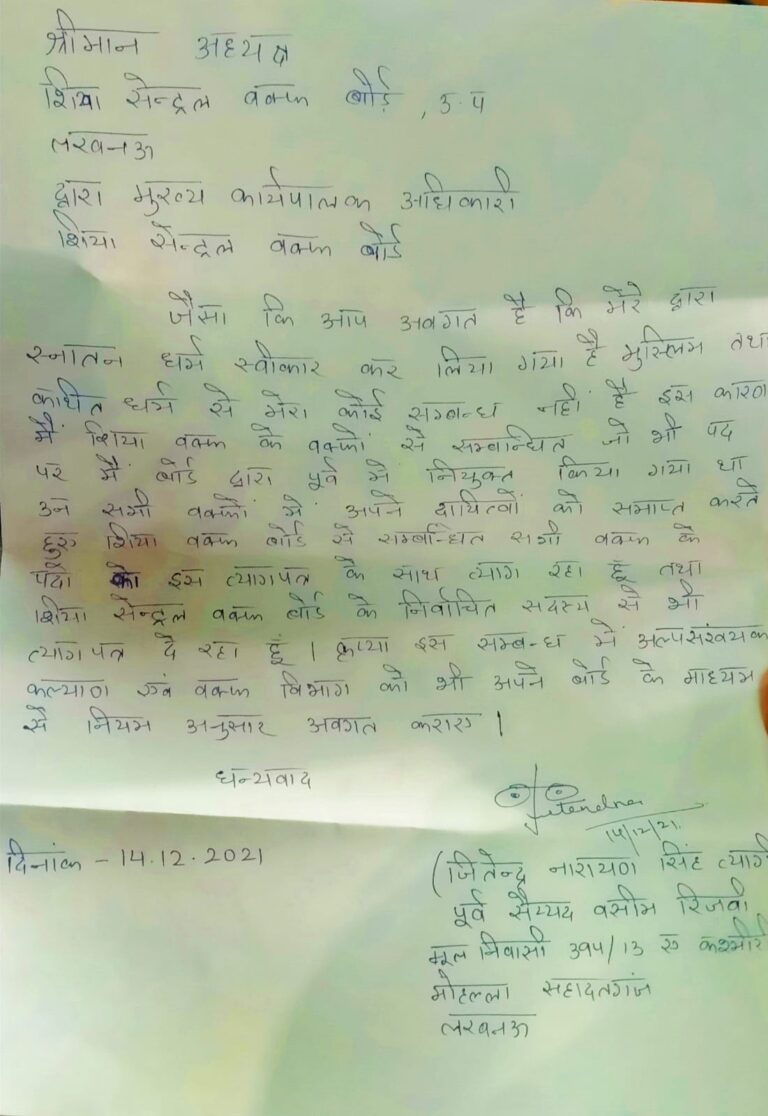 श्रीमान अध्यक्ष
शिया सेन्ट्रल वक्फ बोर्ड, उ.प
लखनऊ
द्वारा मुख्य कार्यपालक अधिकारी
शिया सेन्ट्रल वक्फ बोर्ड
जैसा कि आप अवगत है कि मेरे द्वारा
स्नातन धर्म स्वीकार कर लिया गया है मुस्लिम तथा
कथित धर्म से मेरा कोई सम्बन्ध नहीं है इस कारण
मैं शिया वक्फ के वक्फो से सम्बन्धित जो भी पद
पर मैं बोर्ड द्वारा पूर्व में नियुक्त किया गया था
उन सभी वक्फों में अपने दायित्वों को समाप्त करते
हुए शिया वक्फ बोर्ड से सम्बन्धित सभी वक्फ के
पदो को इस त्यागपत्र के साथ त्याग रहा हूँ तथा
शिया सेन्ट्रल वक्फ बोर्ड के निर्वाचित सदस्य से भी
त्यागपत्र दे रहा हूँ । कृप्या इस सम्बन्ध में अल्पसंख्यक
कल्याण एवं वक्फ विभाग को भी अपने बोर्ड के माध्यम
से नियम अनुसार अवगत कराए ।
धन्यवाद
Jitendra
14/12/21.
दिनांक - 14.12.2021
(जितेन्द्र नारायण सिंह त्यागी
पूर्व सैय्यद वसीम रिजवी
मूल निवासी 394/13 ए कश्मीरी
मोहल्ला सहादतगंज
लखनऊ